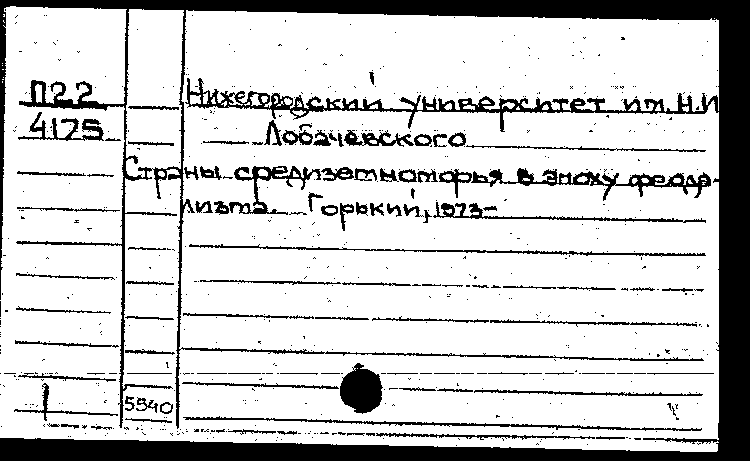 П22
Нижегородский университет им. Н.И
4175
Лобачевского
Страны средиземноморья в эпоху феода-
лизма. Горький, 1973-
5540